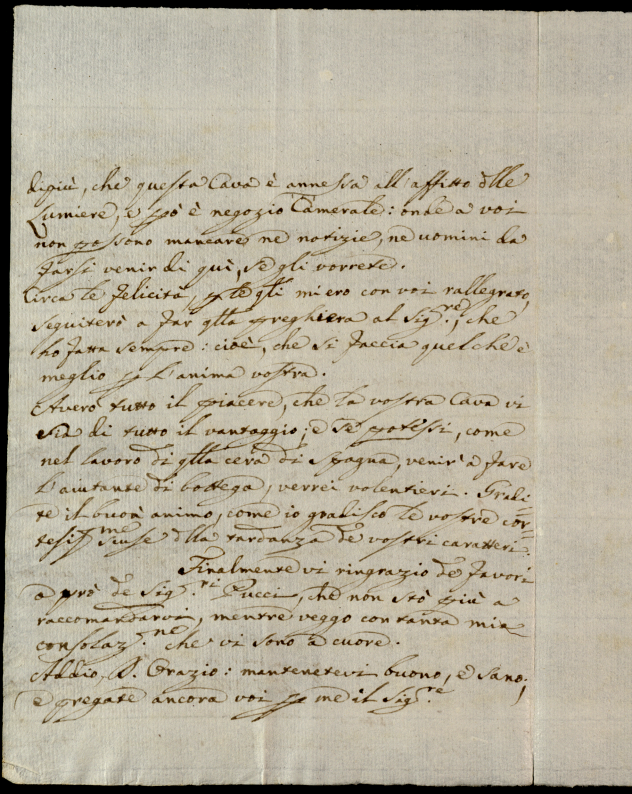 di più, che questa Cava è annessa all'affitto dlle
Lumiere, e pò è negozio Camerale: onde a voi
non possono mancare nè notizie, nè uomini da
farsi venir di quì, se gli vorrete.
Circa le felicità, p le qli mi ero con voi rallegrato,
seguiterò a far qlla preghiera al Sig.re, che
ho fatta sempre: cioè, che si faccia quel che è
meglio p l'anima vostra.
Averò tutto il piacere, che la vostra Cava vi
sia di tutto il vantaggio; e se potessi, come
nel lavoro di qlla cera di Spagna, venir a fare
l'aiutante di bottega, verrei volentieri. Gradi=
te il buon animo, come io gradisco le vostre cor=
tesis.me scuse dlla tardanza de' vostri caratteri.
Finalmente vi ringrazio de' favori
a prò de' Sig.ri Pucci, che non stò più a
raccomandarvi, mentre veggo con tanta mia
consolaz.ne che vi sono a cuore.
Addio, S. Orazio: mantenetevi buono, e sano,
e pregate ancora voi p me il Sig.re